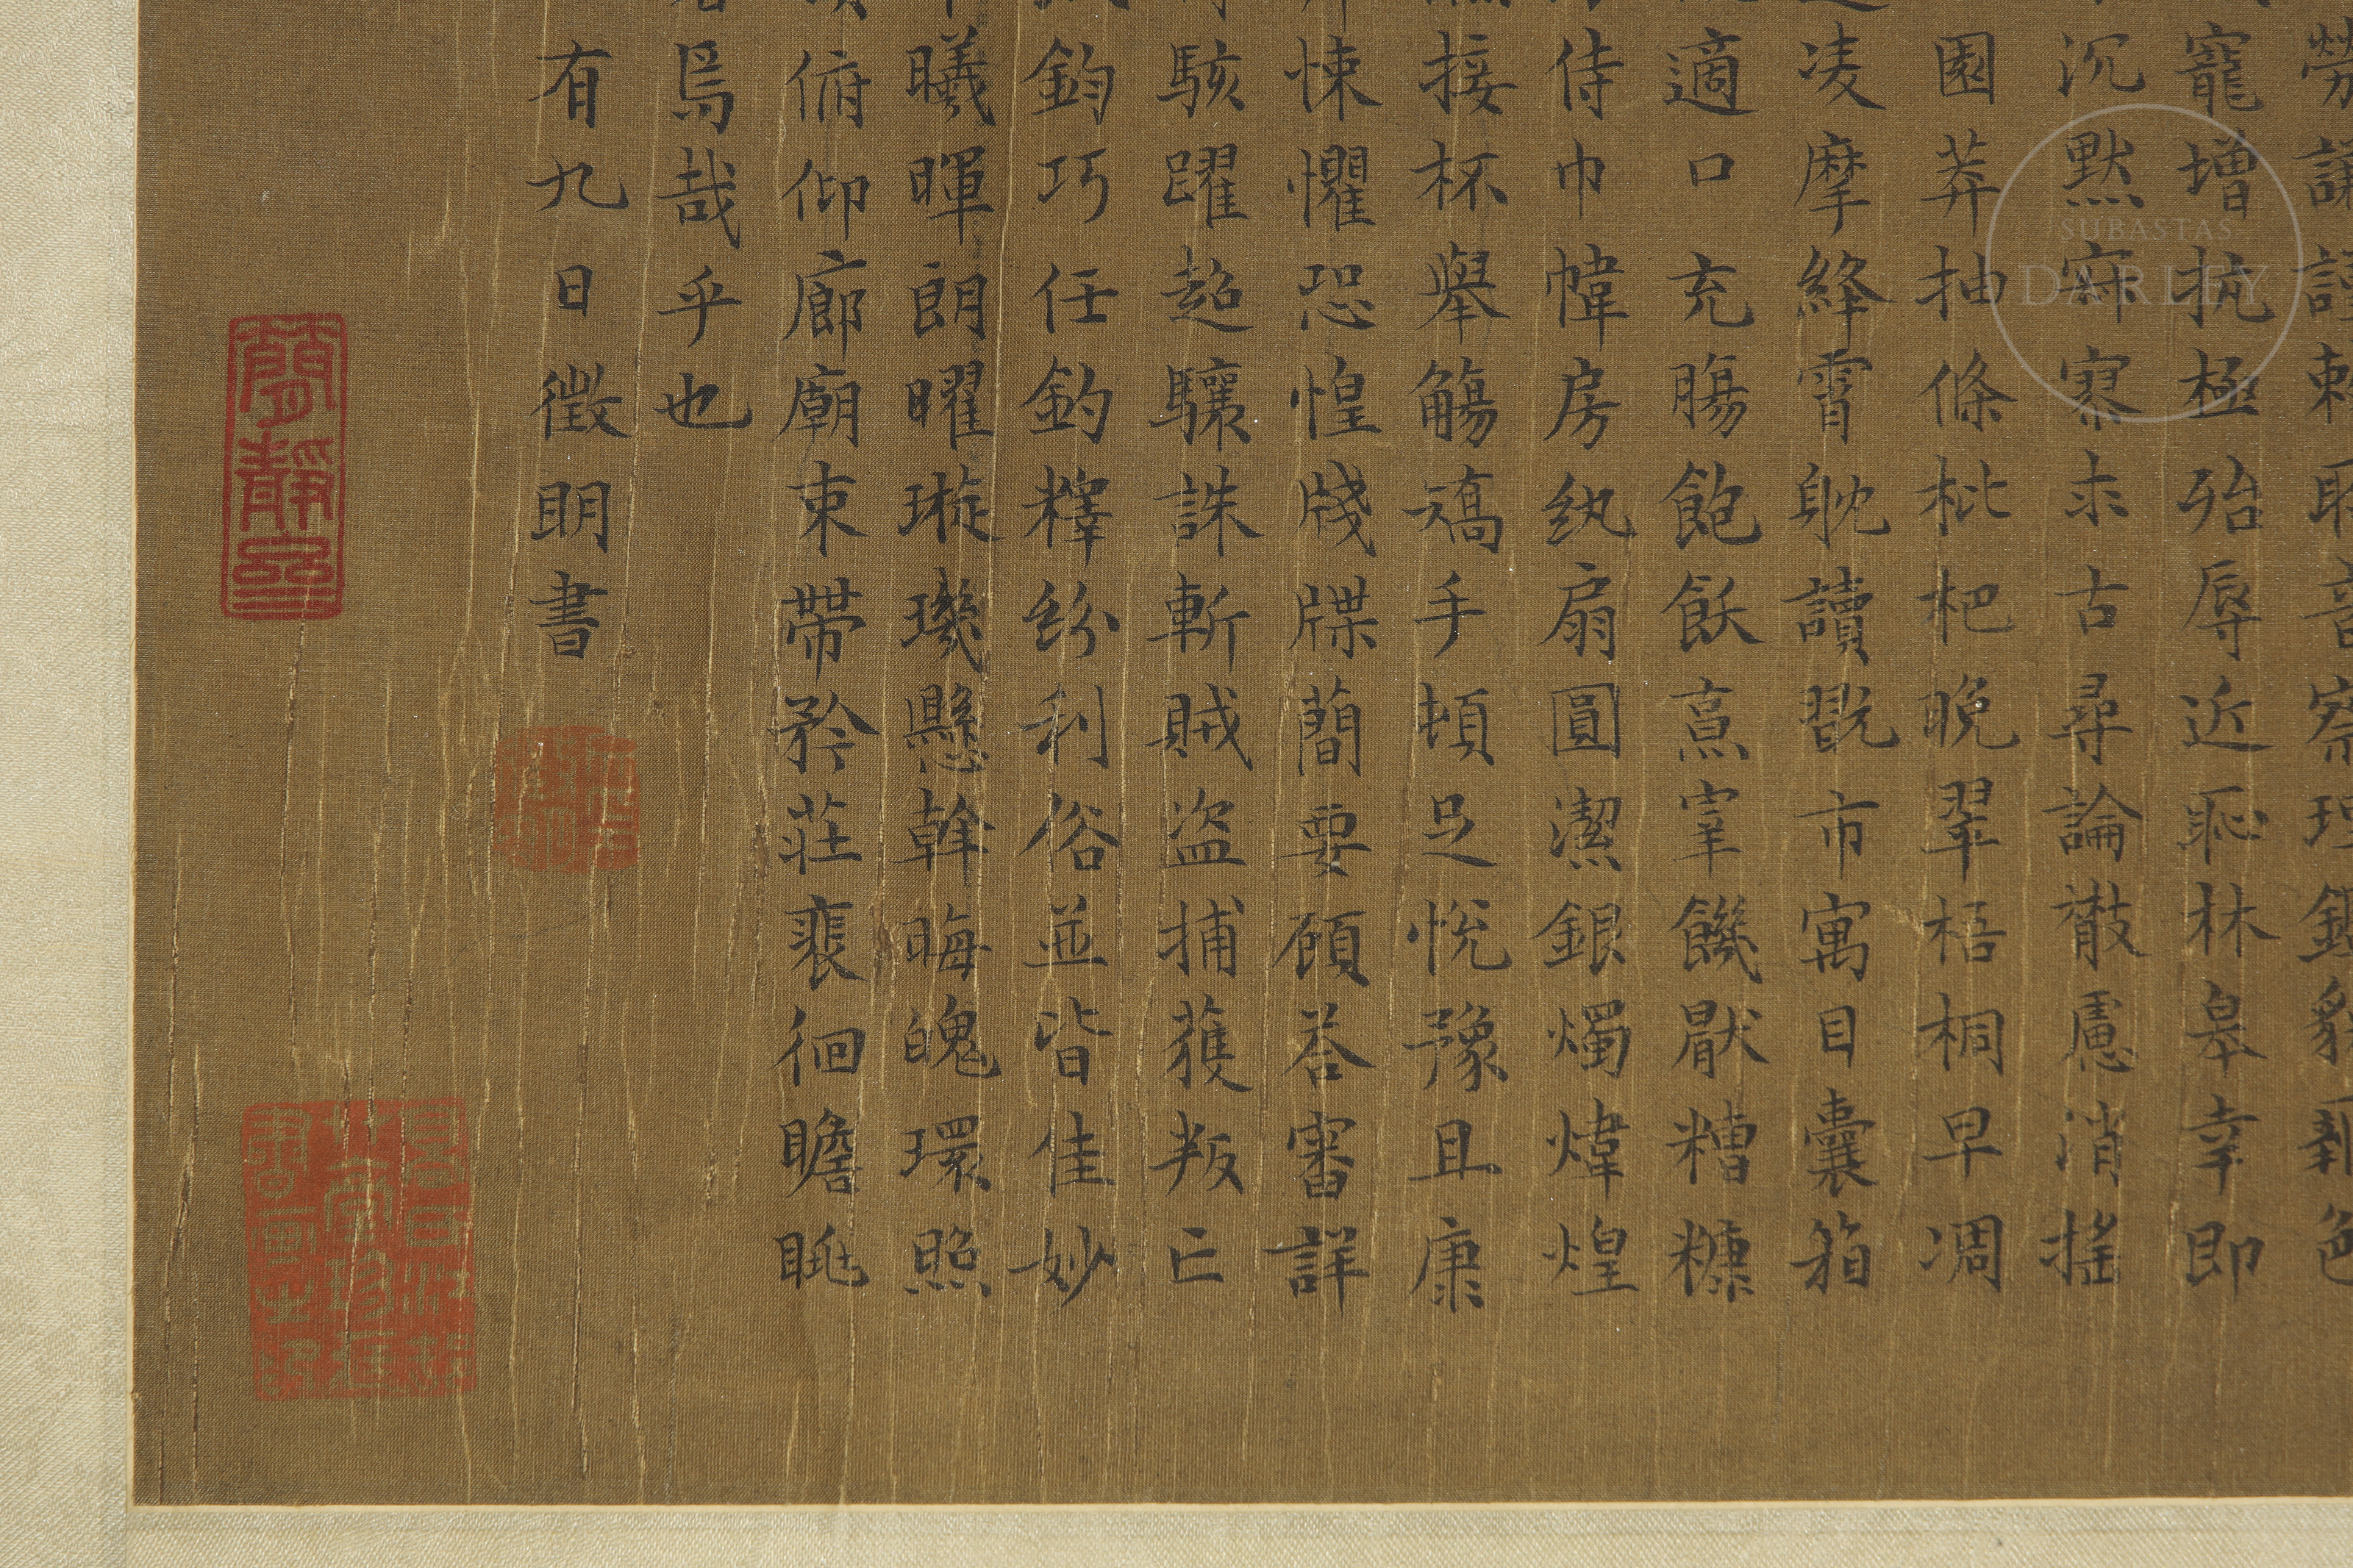 勞謙謹敕聆音察理鑑貌辯色
寵增抗極殆辱近恥林皋幸即
沉默寂寥求古尋論散慮消搖
園莽抽條枇杷晚翠梧桐早凋
凌摩絳霄耽讀翫市寓目囊箱
適口充腸飽飫烹宰饑厭糟糠
侍巾帷房紈扇圓潔銀燭煒煌
接杯舉觴矯手頓足悅豫且康
悚懼恐惶牋牒簡要顧答審詳
駭躍超驤誅斬賊盜捕獲叛亡
鈞巧任釣釋紛利俗並皆佳妙
曦暉朗曜璇璣懸斡晦魄環照
俯仰廊廟束帶矜莊裴徊瞻眺
焉哉乎也
有九日徵明書
SUBASTAS
DARLEY